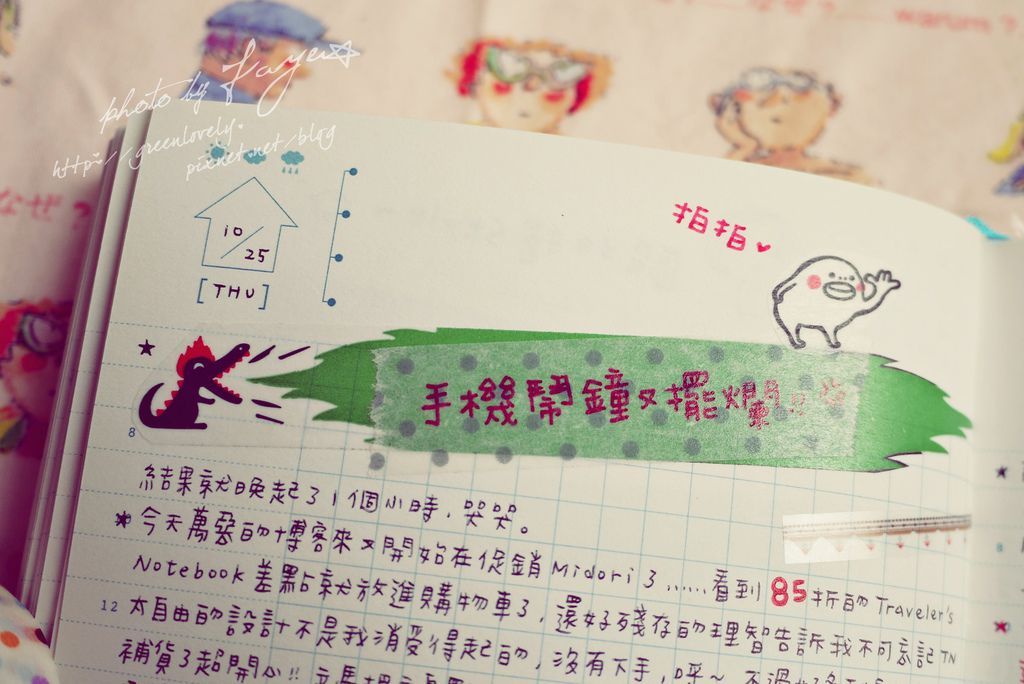 photo by Faye
http://greenlovely.
pixnet.net/blog
warum?
なぜ?
10/25
[THU]
拍拍♥
手機鬧鐘又擺爛
8
結果就晚起了1個小時,哭哭。
今天萬惡的博客來又開始在促銷Midori了......看到85折的Traveler's
Notebook差點就放進購物車了,還好殘存的理智告訴我不可忘記TN
12
太自由的設計不是我消受得起的,沒有下手,呼~
補貨了超開心!!
8